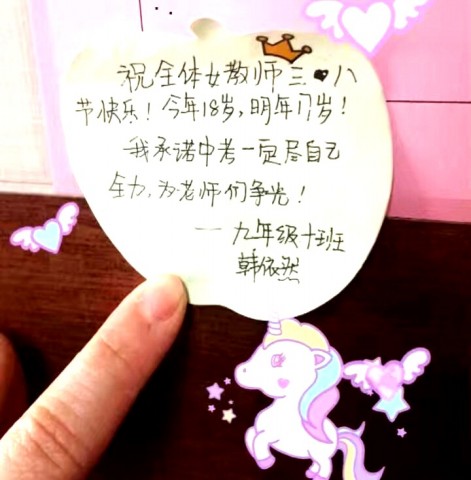 祝全体女教师三•八
节快乐！今年18岁，明年17岁！
我承诺中考一定尽自己
全力，为老师们争光！
——九年级十班
韩依然